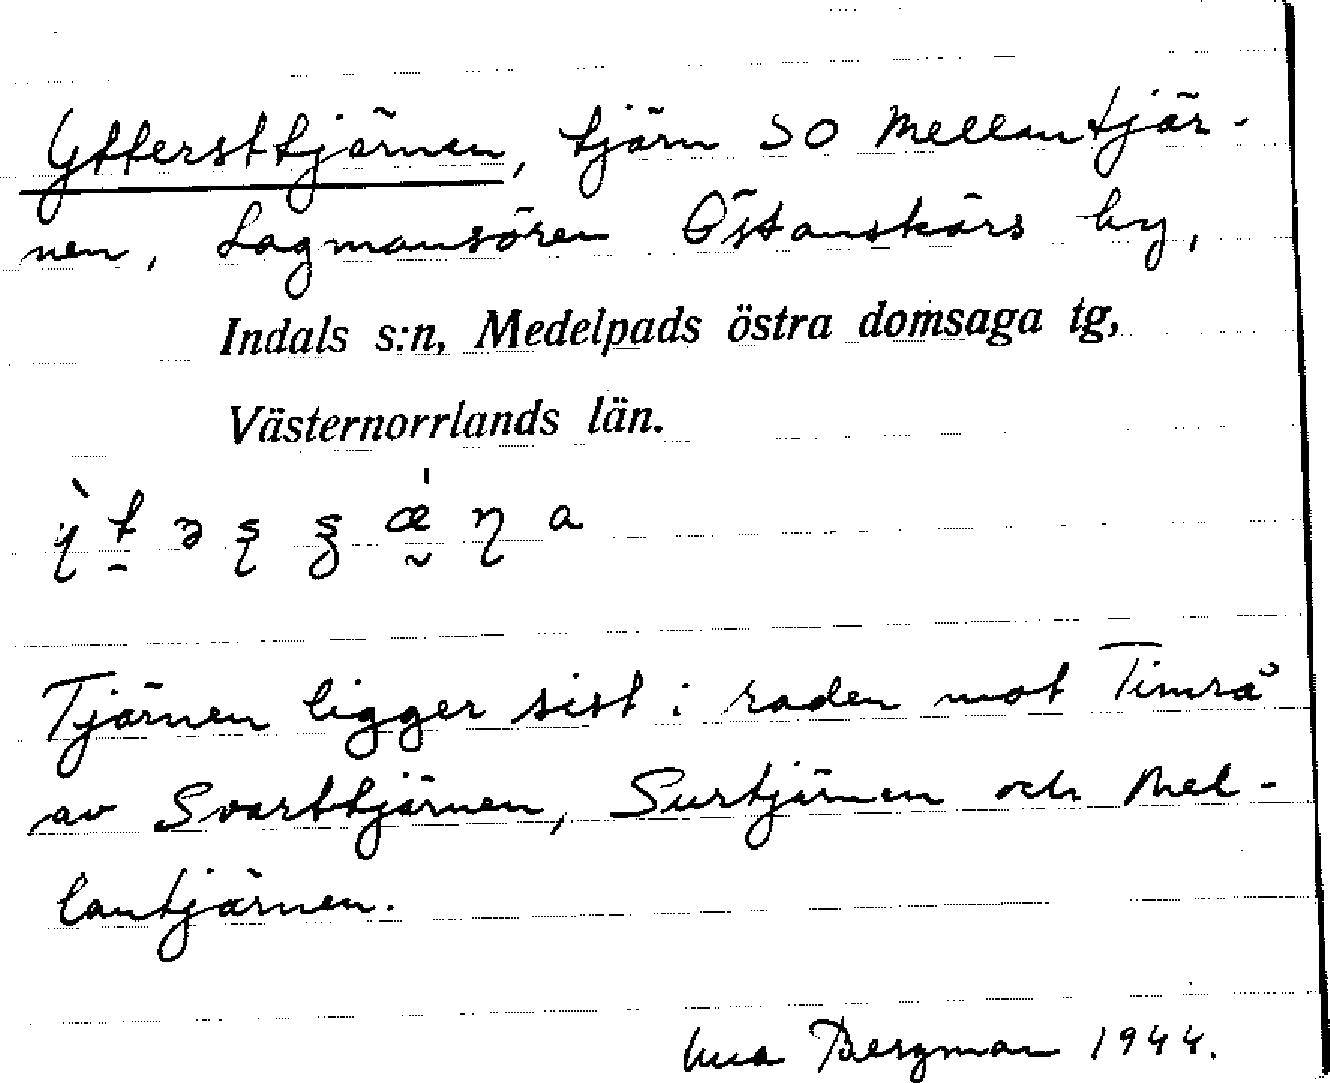 Ytterst tjärnen, tjärn SO Mellantjär-
nen, Lagmansören Östanskärs by,
Indals s:n, Medelpads östra domsaga tg,
Västernorrlands län.
Tjärnen ligger sist i raden mot Timrå
av Svarttjärnen, Surtjärnen och Mel-
lantjärnen.
Bergman 1944.